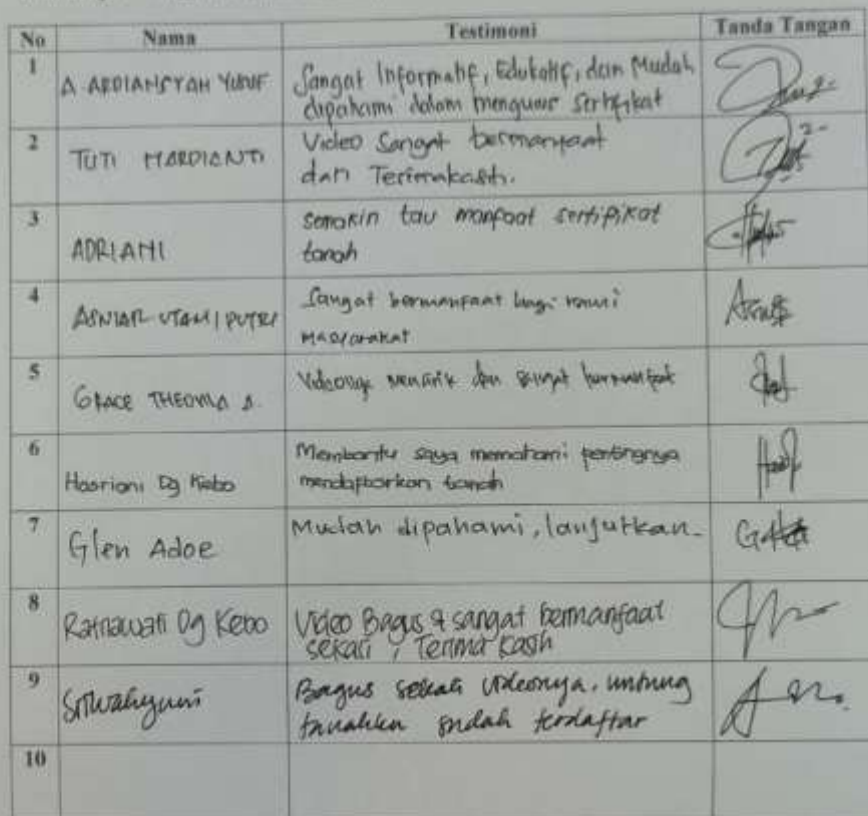 No Nama Testimoni Tanda Tangan
1 A ARDIANSYAH YUSUF Sangat Informatif, Edukatif, dan Mudah
dipahami dalam mengurus Sertifikat
2 TUTI MARDIANTI Video Sangat bermanfaat
dan Terimakasih.
3 ADRIANI semakin tau manfaat sertipikat
tanah
4 ASNIAR UTAMI PUTRI Sangat bermanfaat bagi kami
masyarakat
5 GRACE THEOVILA S. Videonya menarik dan sangat bermanfaat
6 Hasriani Dg Kebo Membantu saya memahami pentingnya
mendaftarkan tanah
7 Glen Adoe Mudah dipahami, lanjutkan.
8 Ratnawati Dg Kebo Video Bagus & sangat bermanfaat
sekali, Terima kasih
9 Sriwahyuni Bagus sekali videonya, untung
tanahku sudah terdaftar
10